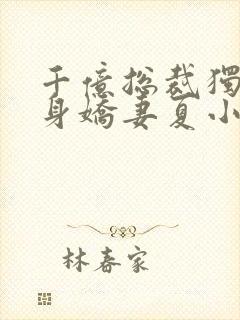 千億總裁獨
身嬌妻夏小
林春家